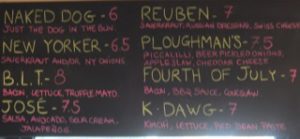 NAKED DOG - 6
JUST THE DOG IN THE BUN.
NEW YORKER - 6.5
SAUERKRAUT AND/OR NY ONIONS
B.L.T. - 8
BACON, LETTUCE, TRUFFLE MAYO.
JOSÉ - 7.5
SALSA, AVOCADO, SOUR CREAM,
JALAPEÑOS
REUBEN - 7
SAUERKRAUT, RUSSIAN DRESSING, SWISS CHEESE
PLOUGHMAN'S - 7.5
PICCALILLI, BEER PICKLED ONIONS,
APPLE SLAW, CHEDDAR CHEESE
FOURTH OF JULY - 7
BACON, BBQ SAUCE, COLESLAW
K-DAWG - 7
KIMCHI, LETTUCE, RED BEAN PASTE